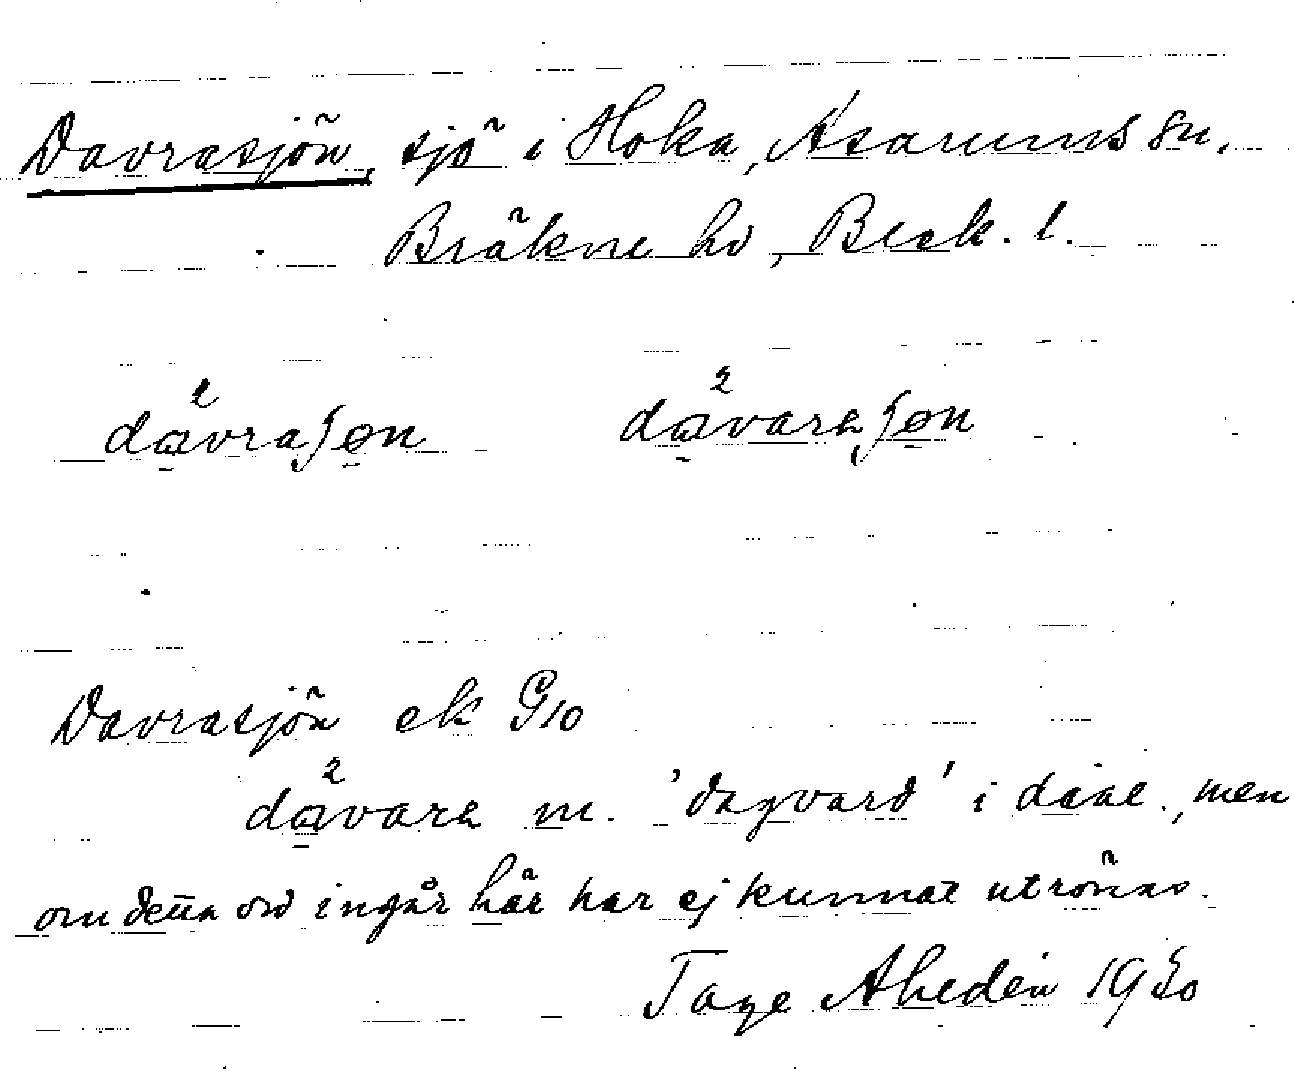 Davrasjön, sjö i Hoka, Asarums sn,
Bräkne hd, Blek. l.
dȧvraʃøn dȧvaraʃøn
Davrasjön ek G10
dȧvara m. 'dagvard' i dial., men
om detta ord ingår här har ej kunnat utrönas.
Tage Ahedén 1930